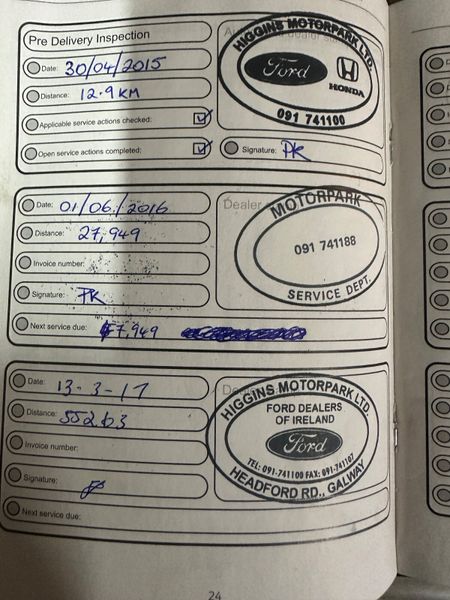 Pre Delivery Inspection
Date: 30/04/2015
Distance: 12.9 KM
Applicable service actions checked:
Open service actions completed:
HIGGINS MOTORPARK LTD.
Ford
HONDA
091 741100
Signature: PK
Date: 01/06/2016
Distance: 27,949
Invoice number:
Signature: PK
Next service due: 47,949
Dealer
MOTORPARK
091 741188
SERVICE DEPT.
Date: 13-3-17
Distance: 55263
Invoice number:
Signature:
Next service due:
HIGGINS MOTORPARK LTD.
FORD DEALERS
OF IRELAND
Ford
TEL: 091-741100 FAX: 091-741107
HEADFORD RD., GALWAY
24